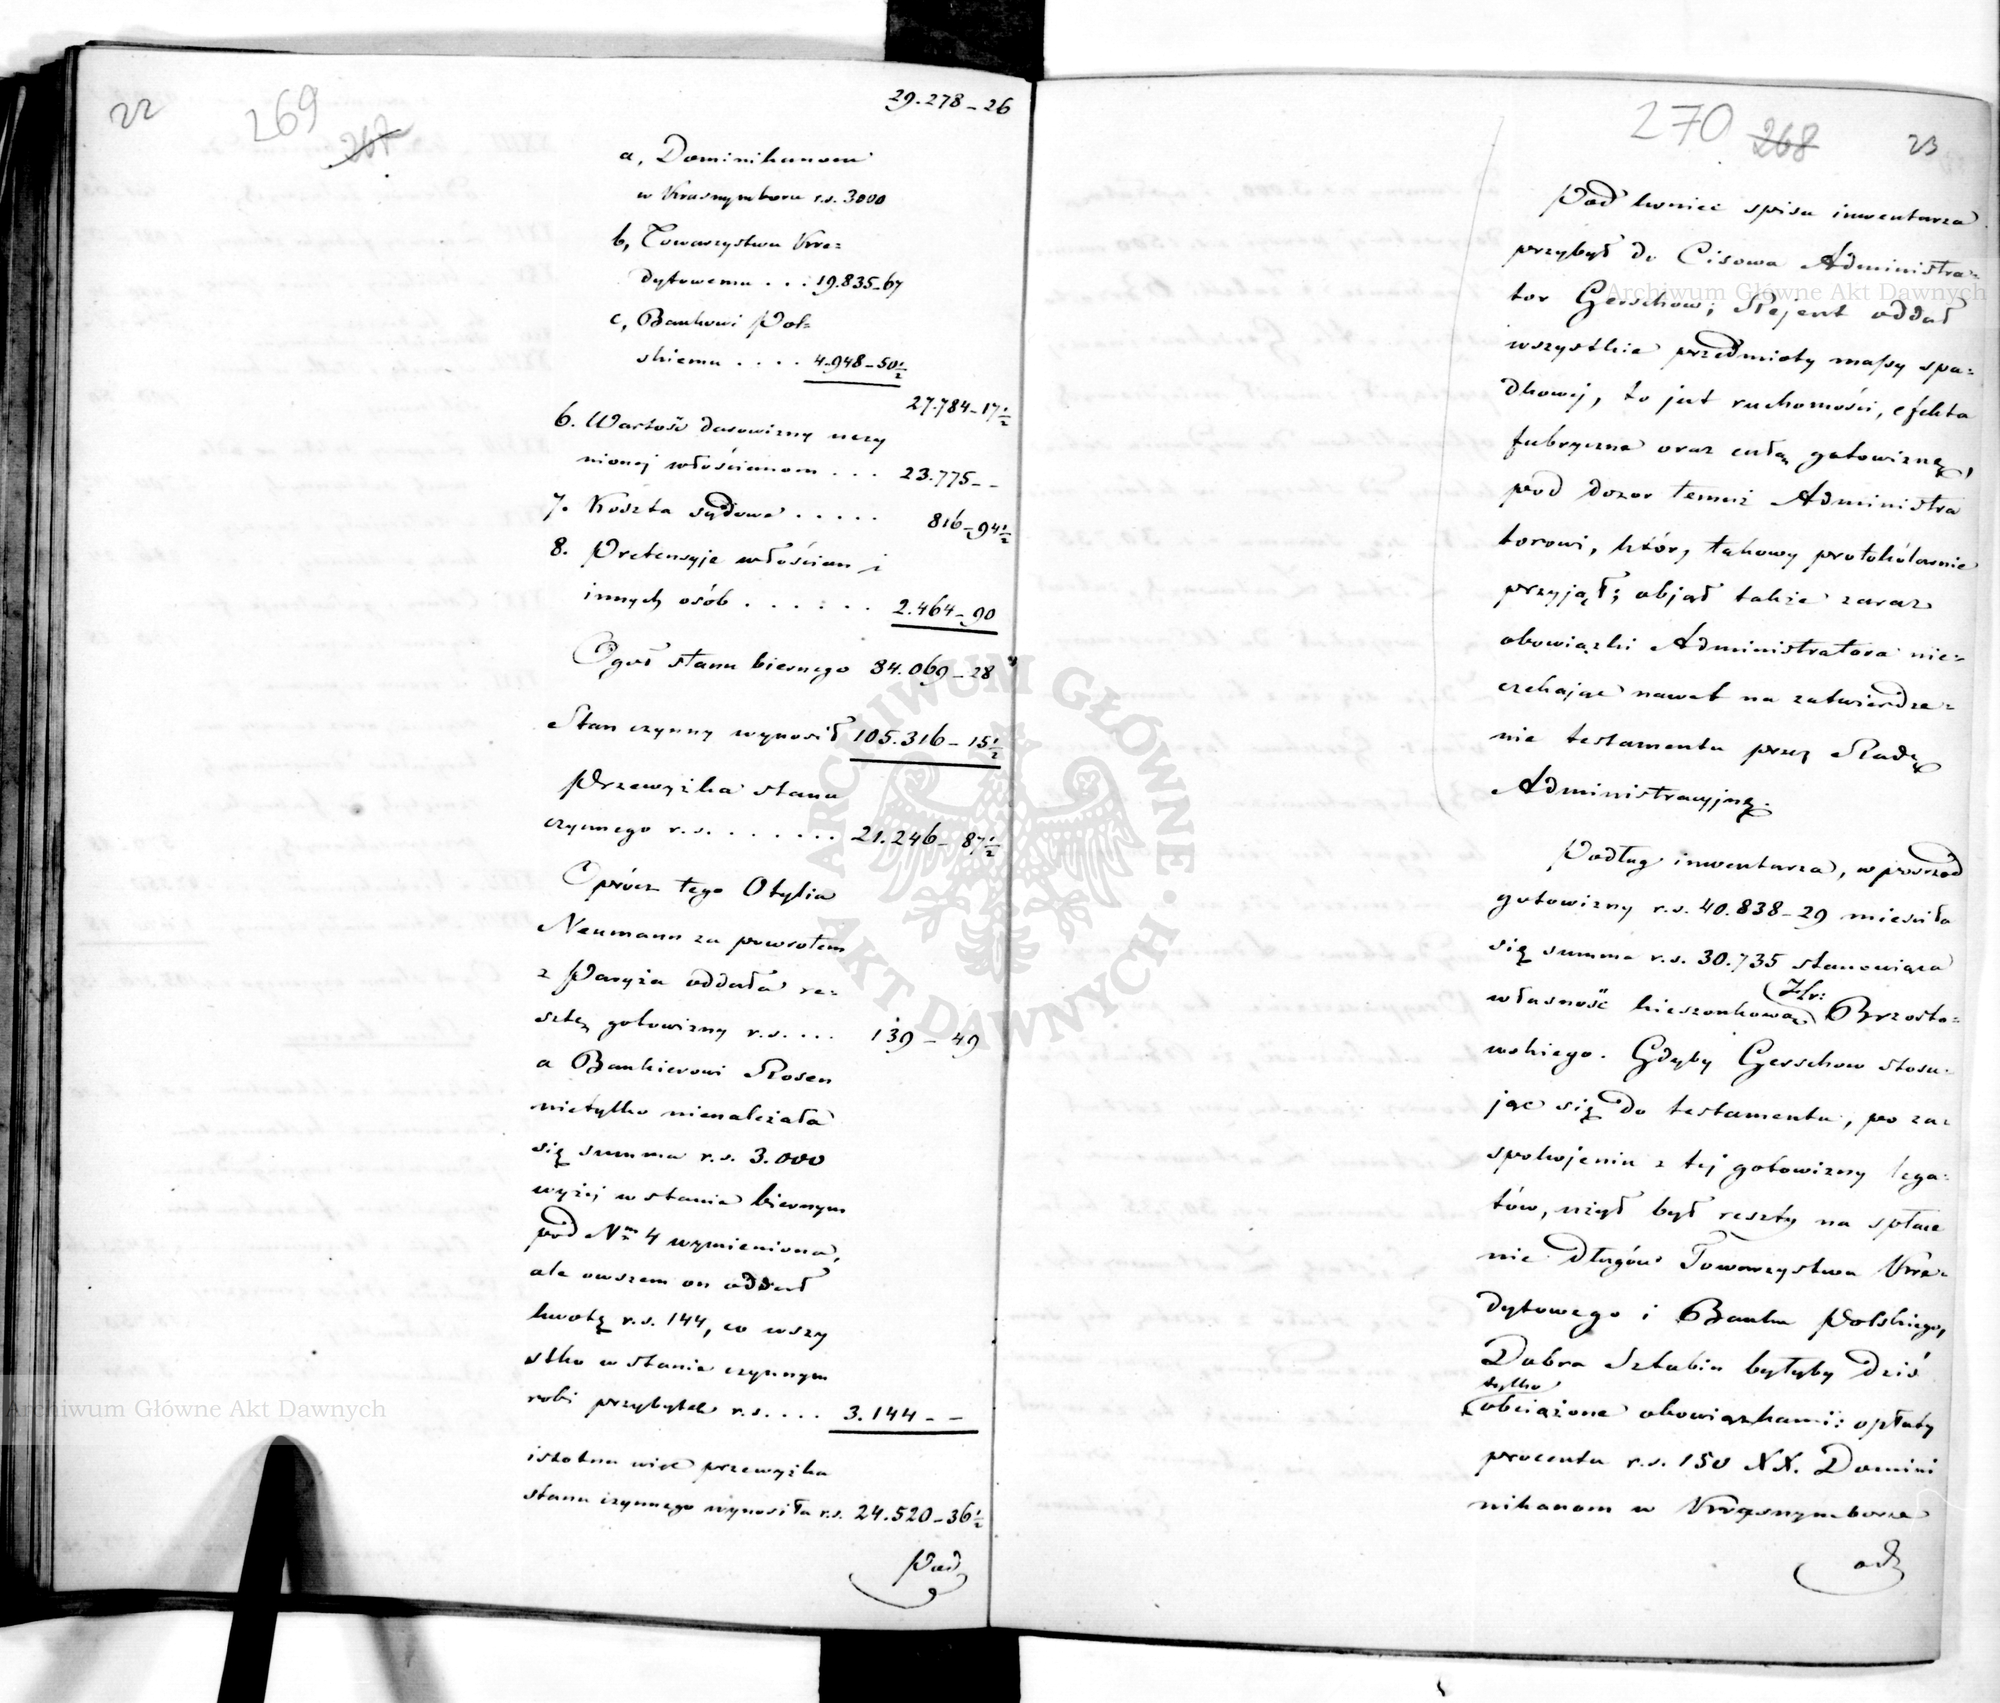 22
269
267
29.278-26
a, Dominikanom
w Krasnymboru r.s. 3000
b, Towarzystwu Kre=
dytowemu . . . 19.835-67
c, Bankowi Pol=
skiemu . . . . 4.948-50½
27.784-17½
6. Wartość darowizny uczy
nionej włościanom . . . 23.775--
7. Koszta sądowe . . . . . 816-94½
8. Pretensyje włościan i
innych osób . . . . . . 2.464-90
Ogół stanu biernego 84.069-28
Stan czynny wynosił 105.316-15½
Przewyżka stanu
czynnego r.s. . . . . . . 21.246-87½
Oprócz tego Otylia
Neumann za powrotem
z Paryża oddała re=
sztę gotowizny r.s. . . . 139-49
a Bankierowi Rosen
nietylko nienależała
się summa r.s. 3.000
wyżej w stanie biernym
pod Nm 4 wymieniona,
ale owszem on oddał
kwotę r.s. 144, co wszy
stko w stanie czynnym
robi przybytek r.s. . . . . 3.144--
istotna więc przewyżka
stanu czynnego wynosiła r.s. 24.520-36½
Pod
270
268
23
Pod koniec spisu inwentarza
przybył do Cisowa Administra=
tor Gerschow; Rejent oddał
wszystkie przedmioty massy spa=
dkowej, to jest ruchomości, efekta
fabryczne oraz całą gotowiznę,
pod dozor temuż Administra
torowi, który takowy protokólarnie
przyjął; objął także zaraz
obowiązki Administratora nie=
czekając nawet na zatwierdze=
nie testamentu przez Radę
Administracyjną.
Podług inwentarza, w posrzód
gotowizny r.s. 40.838-29 mieściła
się summa r.s. 30.735 stanowiąca
własność kieszonkową Hr: Brzosto=
wskiego. Gdyby Gerschow stosu=
jąc się do testamentu, po za=
spokojeniu z tej gotowizny lega=
tów, użył był reszty na spłace
nie długów Towarzystwa Kre=
dytowego i Banku Polskiego,
Dobra Sztabin byłyby dziś
tylko
obciążone obowiązkami: opłaty
procentu r.s. 150 XX. Domini
nikanom w Krasnymborze
od
Archiwum Główne Akt Dawnych
Archiwum Główne Akt Dawnych
ARCHIWUM GŁÓWNE AKT DAWNYCH